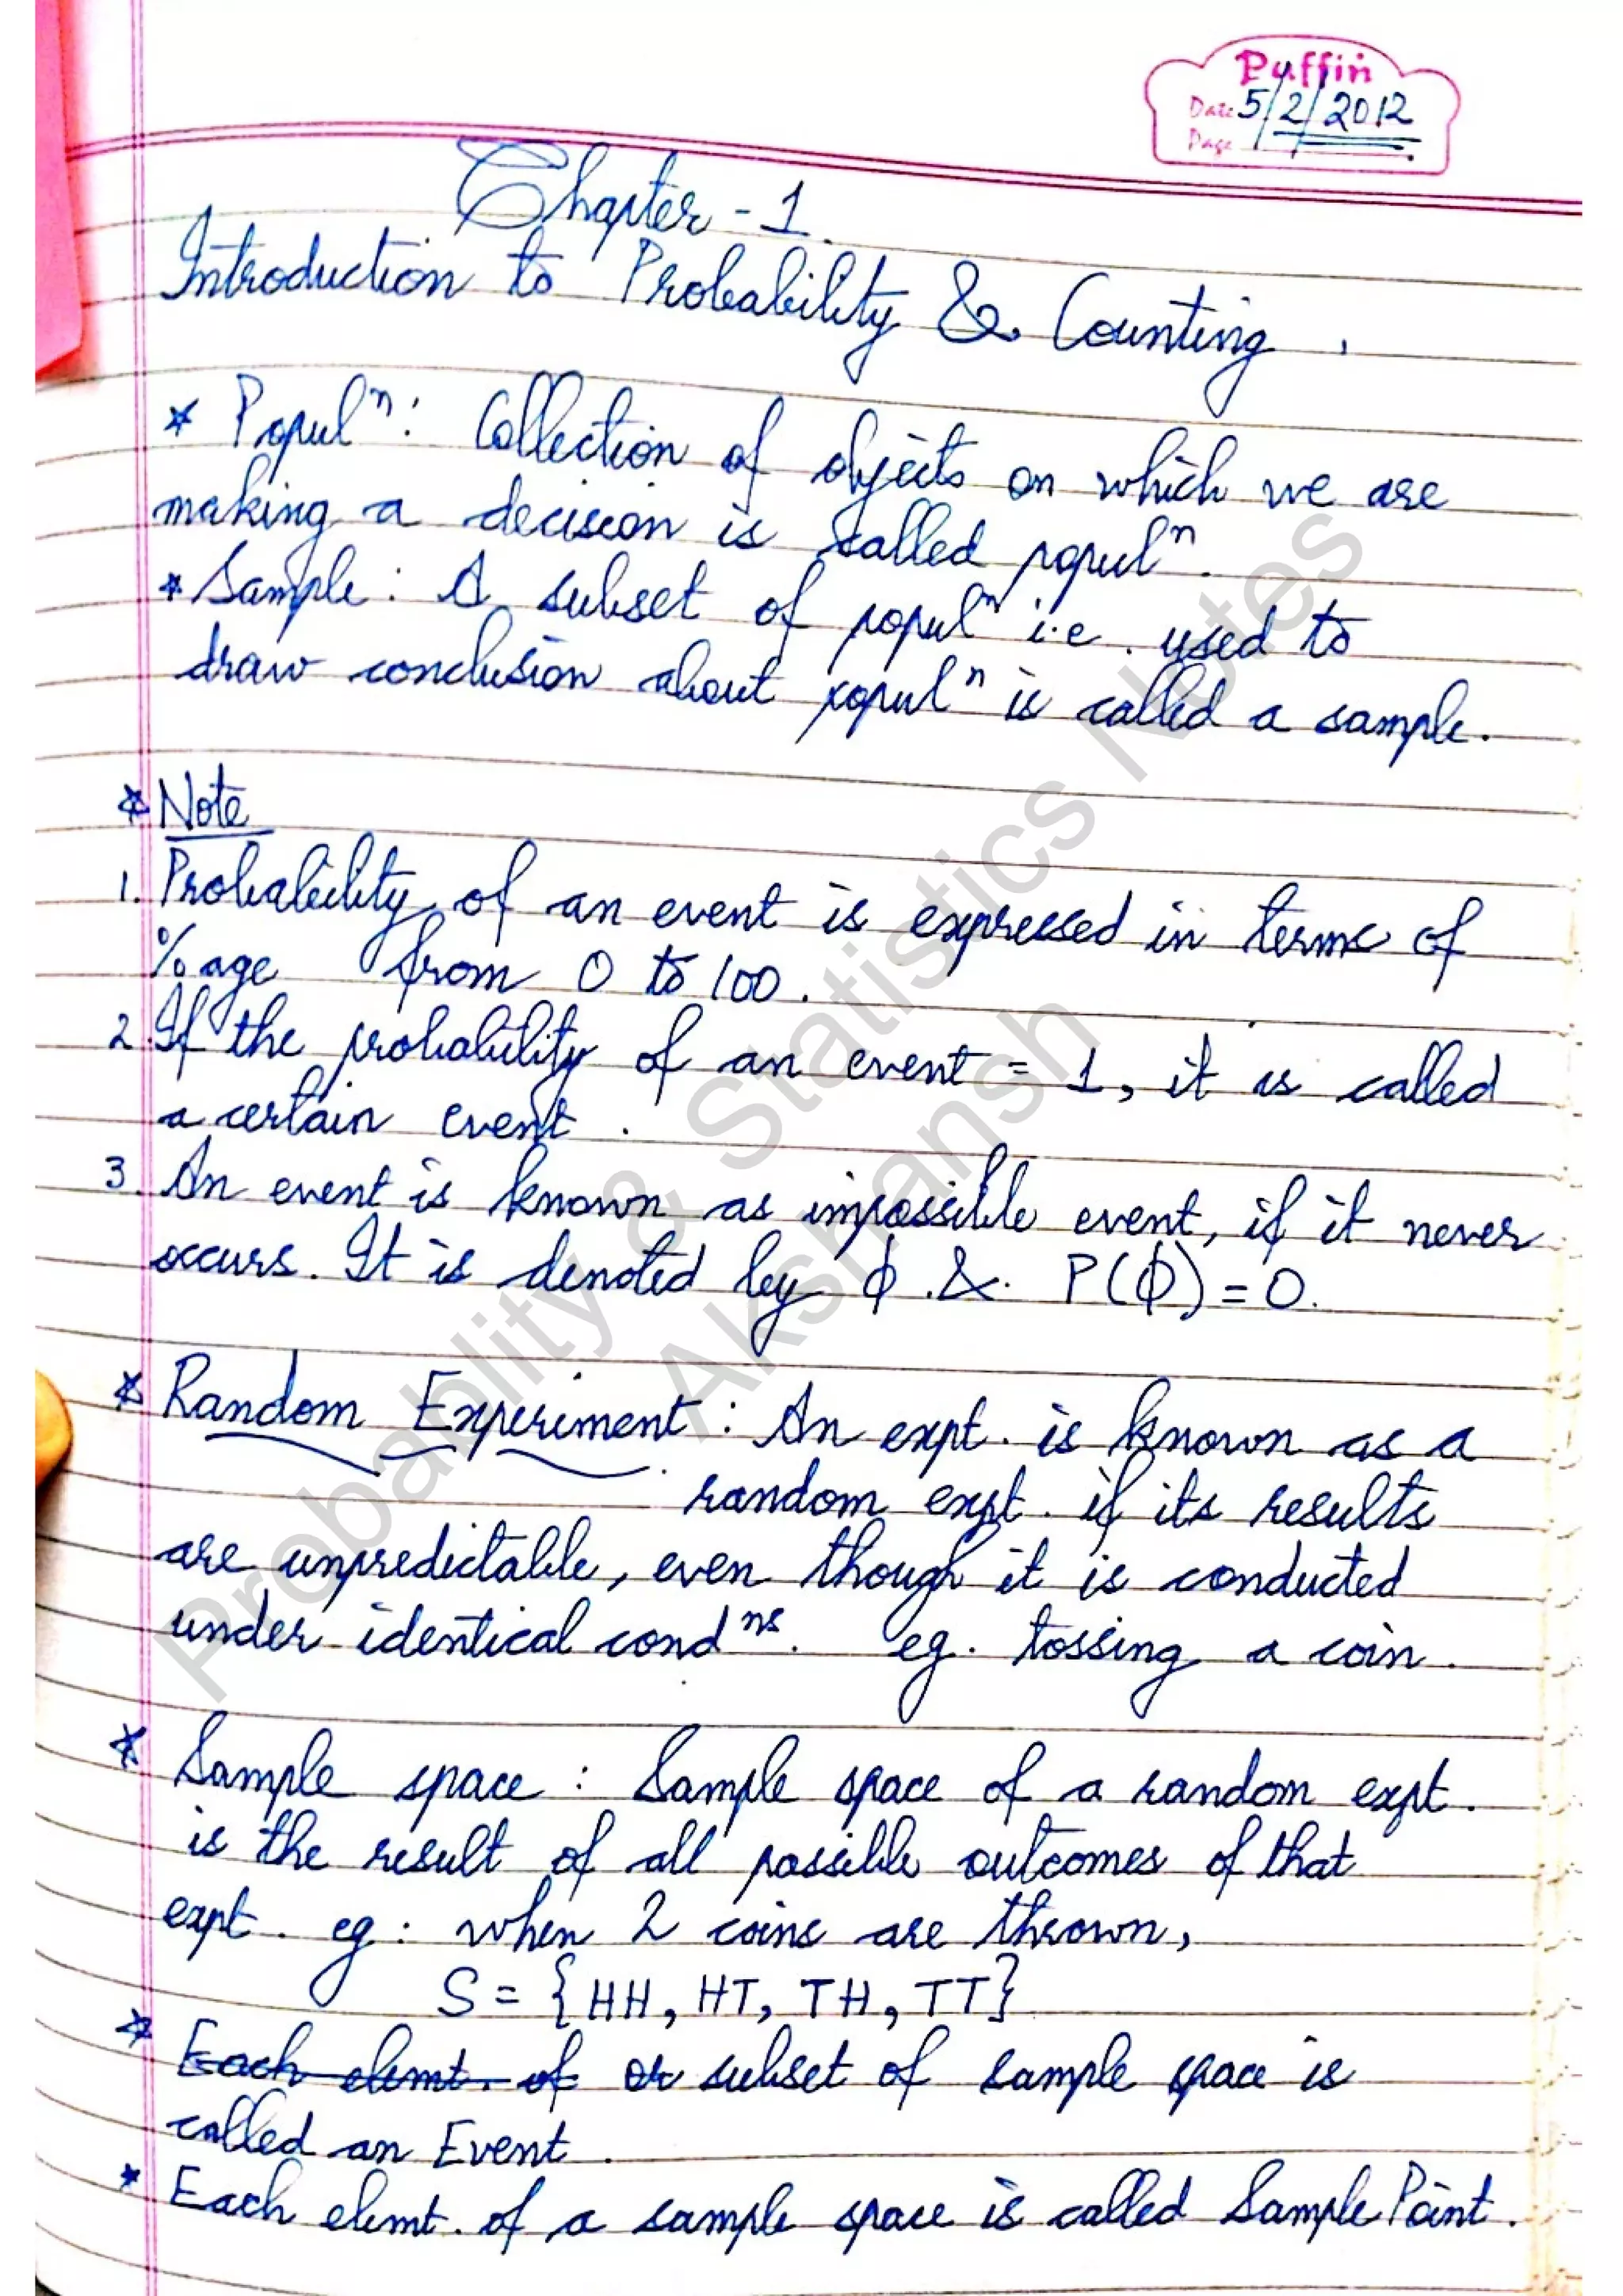 Puffin
Date 5/2/2012
Page
Chapter - 1.
Introduction to Probability & Counting.
* Populⁿ: Collection of objects on which we are
making a decision is called populⁿ.
* Sample: A subset of populⁿ i.e. used to
draw conclusion about populⁿ is called a sample.
* Note
1. Probability of an event is expressed in terms of
%age from 0 to 100.
2. If the probability of an event = 1, it is called
a certain event.
3. An event is known as impossible event, if it never
occurs. It is denoted by ϕ & P(ϕ) = 0.
* Random Experiment: An expt. is known as a
random expt. if its results
are unpredictable, even though it is conducted
under identical condⁿˢ. eg. tossing a coin.
* Sample space: Sample space of a random expt.
is the result of all possible outcomes of that
expt. eg: when 2 coins are thrown,
S = {HH, HT, TH, TT}
* Each elemt. of or subset of sample space is
called an Event.
* Each elemt. of a sample space is called Sample Point.
Probablity & Statistics Notes
Akshansh